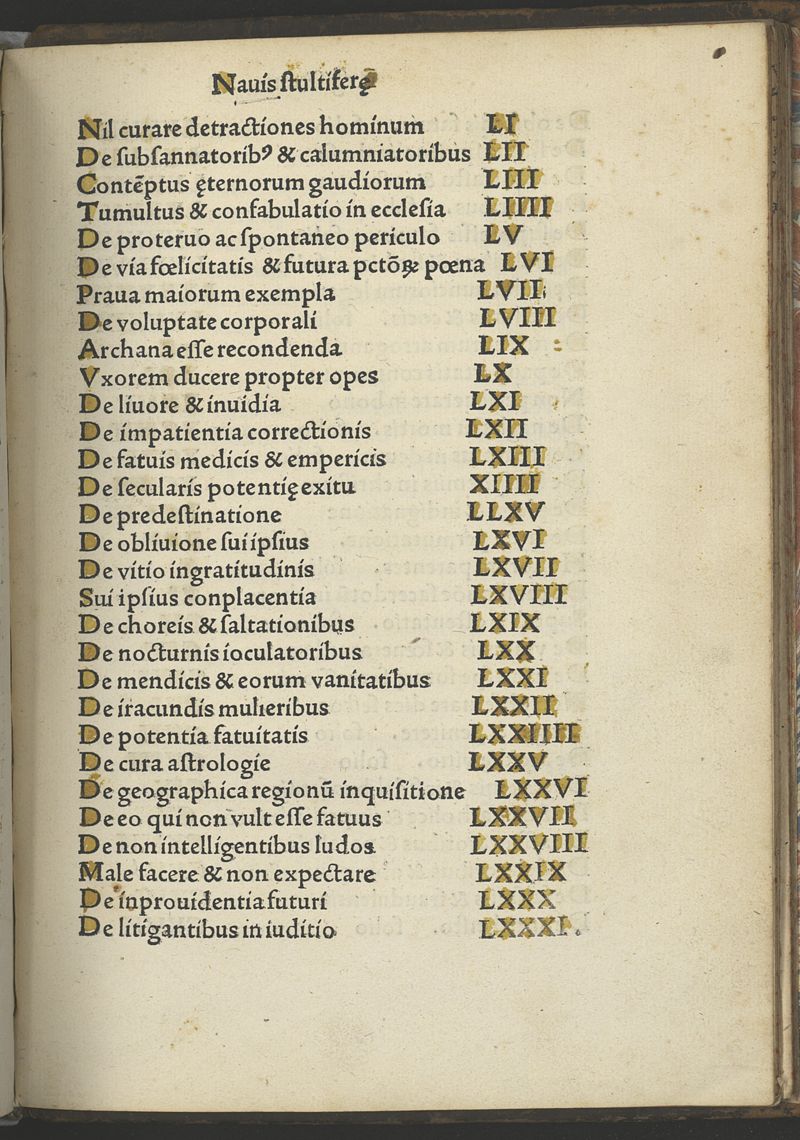 Nauis ſtultiferę
Nil curare detractiones hominum LI
De ſubſannatoribꝰ & calumniatoribus LII
Contēptus ęternorum gaudiorum LIII
Tumultus & confabulatio in eccleſia LIIII
De proteruo ac ſpontaneo periculo LV
De via fœlicitatis & futura pctōꝝ pœna LVI
Praua maiorum exempla LVII
De voluptate corporali LVIII
Archana eſſe recondenda LIX
Vxorem ducere propter opes LX
De liuore & inuidia LXI
De impatientia correctionis LXII
De fatuis medicis & empericis LXIII
De ſecularis potentię exitu XIIII
De predeſtinatione LLXV
De obliuione ſui ipſius LXVI
De vitio ingratitudinis LXVII
Sui ipſius conplacentia LXVIII
De choreis & ſaltationibus LXIX
De nocturnis ioculatoribus LXX
De mendicis & eorum vanitatibus LXXI
De iracundis mulieribus LXXII
De potentia fatuitatis LXXIIII
De cura aſtrologie LXXV
De geographica regionū inquiſitione LXXVI
De eo qui non vult eſſe fatuus LXXVII
De non intelligentibus ludos LXXVIII
Male facere & non expectare LXXIX
De inprouidentia futuri LXXX
De litigantibus in iuditio LXXXI.